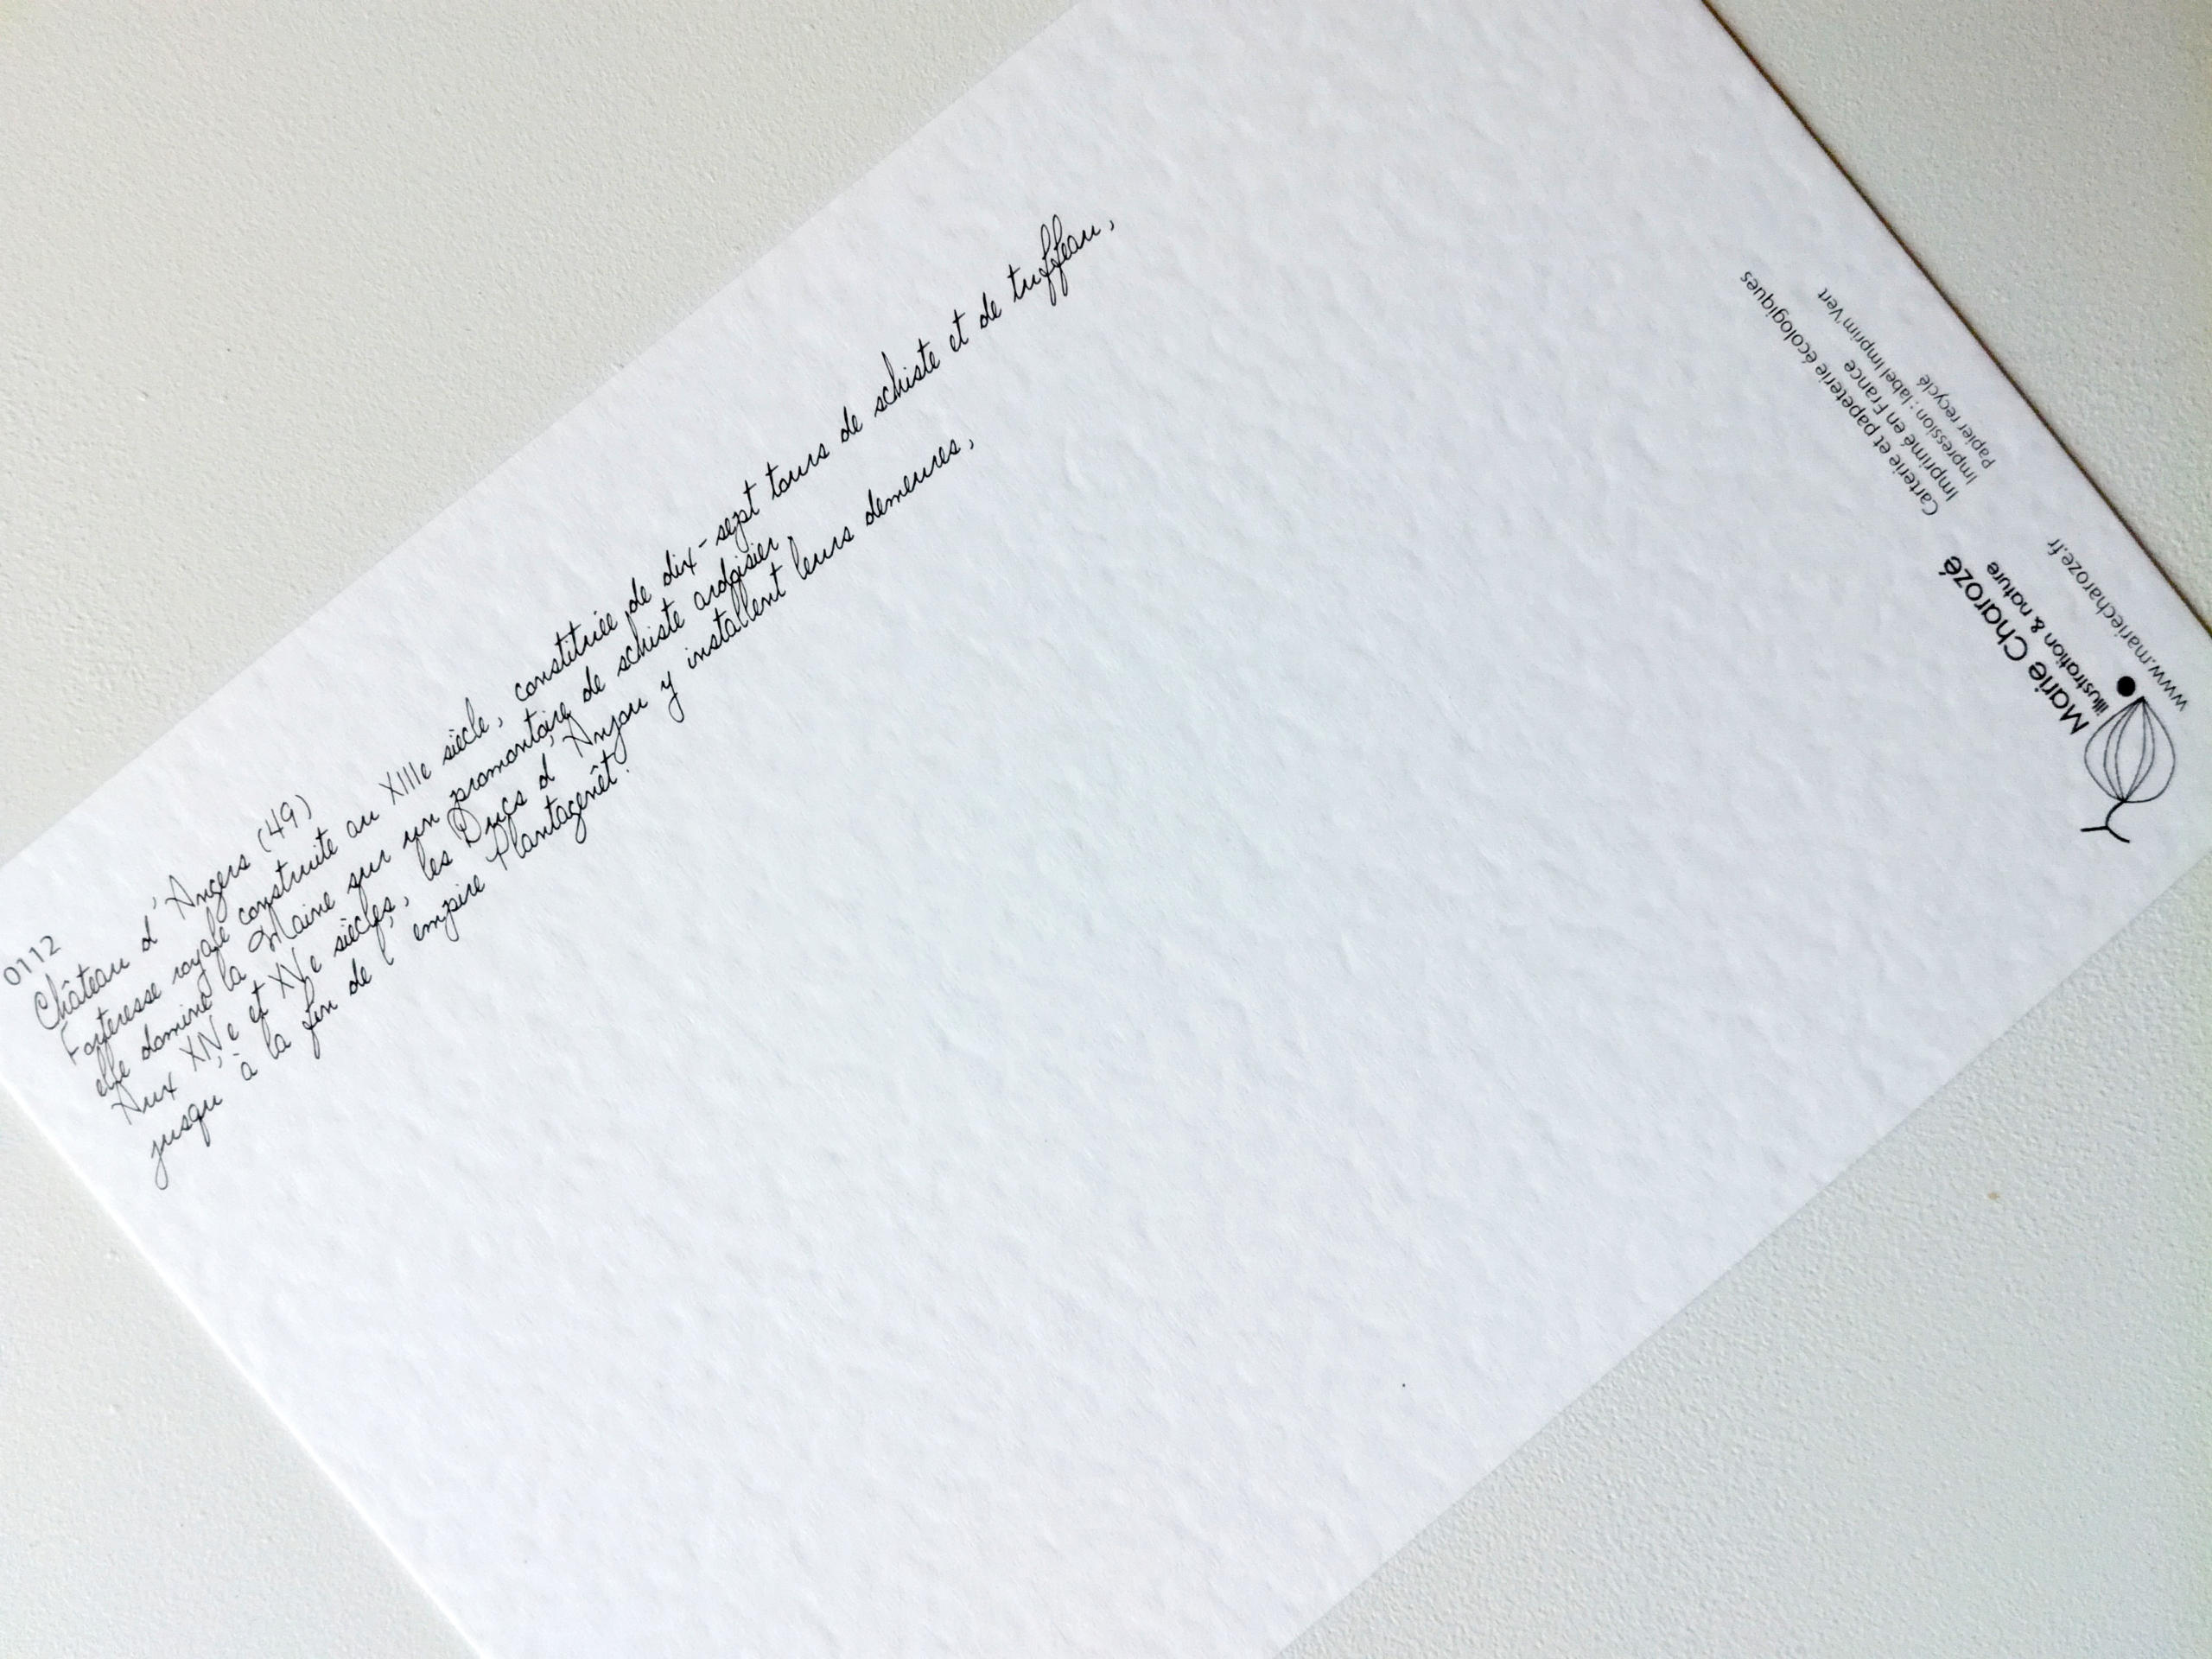 0112
Château d'Angers (49)
Forteresse royale construite au XIIIe siècle, constituée de dix-sept tours de schiste et de tuffeau,
elle domine la Maine sur un promontoire de schiste ardoisier
Aux XIVe et XVe siècles, les Ducs d'Anjou y installent leurs demeures,
jusqu'à la fin de l'empire Plantagenêt.
Marie Charozé
illustration & nature
www.mariecharoze.fr
Carterie et papeterie écologiques
Imprimé en France
Impression : label Imprim'Vert
Papier recyclé